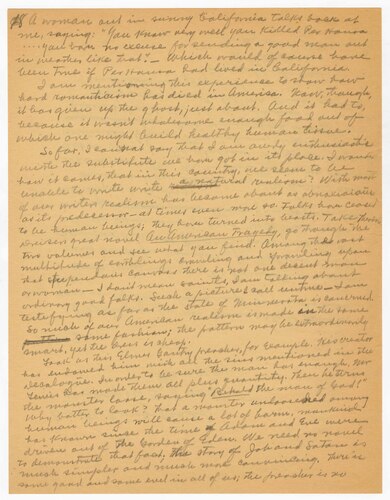 A woman out in sunny California talks back at
me, saying: "You know very well you killed Per Hansa
.... You have no excuse for sending a good man out
in weather like that". – Which would of course have
been true if Per Hansa had lived in California.
I am mentioning this experience to show how
hard romanticism has died in America. Now, though,
it has given up the ghost, just about. And it had to,
because it wasn't wholesome enough food out of
which one might build healthy human tissues.
So far, I can not say that I am overly enthusiastic
with the substitute we have got in its place. I wonder
how it comes, that in this country, we seem to be
unable to write a natural realism? With most
of our writers realism has become almost as
as its predecessor – at times even more so. Folks have ceased
to be human beings; they have turned into beasts. Take
Dreisers great novel An American Tragedy, go through the
two volumes and see what you find. Among the vast
multitude of earthlings crawling and sprawling upon
that stupendous canvas there is not one decent man
or woman – I don't mean saints, I am talking about
ordinary good folks. Such a picture is untrue – I am
testifying as far as the State of Minnesota is concerned.
So much of our American realism is made in the same
fashion, the pattern may be extraordinarily
smart, yet the ware is cheap.
Look at this Elmer Gantry preacher, for example. His creator
has endowed him with all the sins mentioned in the
Decalogue. In order to be sure the man has enough,
Lewis has made them all plus quantity. Then he turns
the monster loose, saying "Behold the man of God!"
Why bother to look? That a monster unloosed among
human beings will cause a lot of harm, mankind
has known since the time Adam and Eve were
driven out of the Gorden of Eden. We need no novel
to demonstrate that fact. The story of Job and Satan is
much simpler and much more convincing. There is
some good and some evil in all of us; the preacher is no